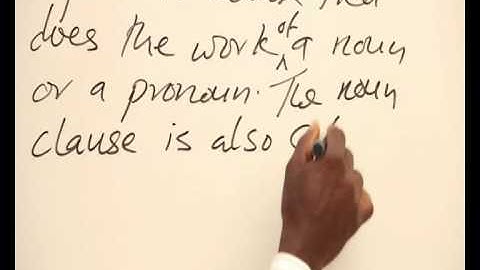 does the work of a noun
or a pronoun. The noun
clause is also